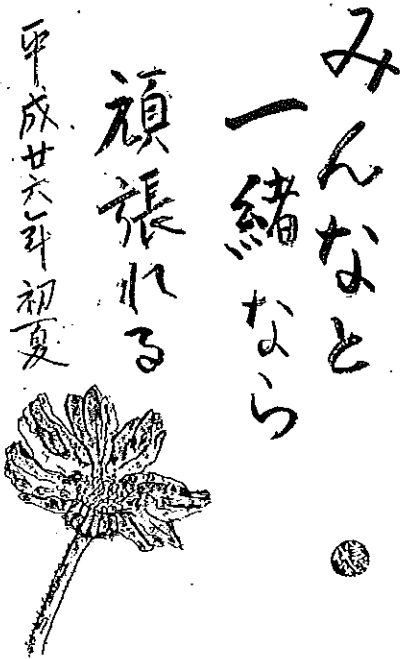 みんなと
一緒なら
頑張れる
平成廿六年初夏